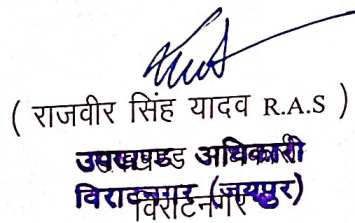 ( राजवीर सिंह यादव R.A.S )
उपखण्ड अधिकारी
विराटनगर (जयपुर)
विराटनगर